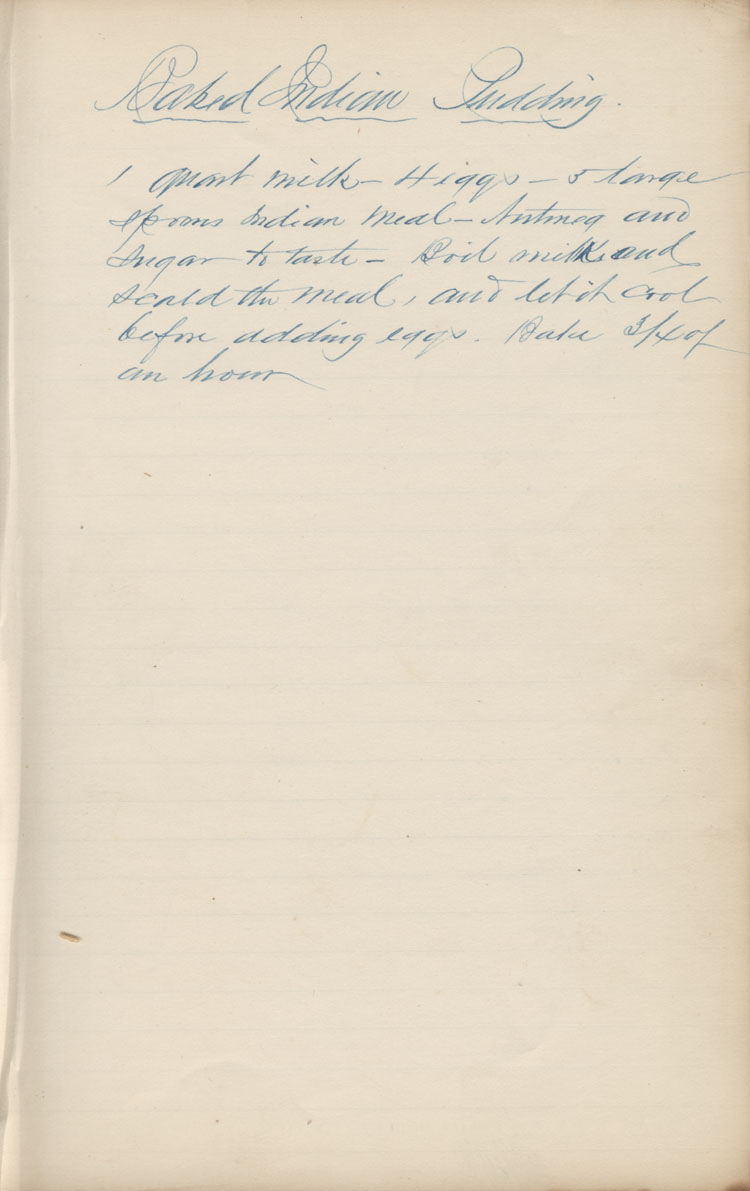 Baked Indian Pudding.
1 quart milk – 4 eggs – 5 large
spoons Indian meal – Nutmeg and
sugar to taste – Boil milk and
scald the meal, and let it cool
before adding eggs. Bake 3/4 of
an hour